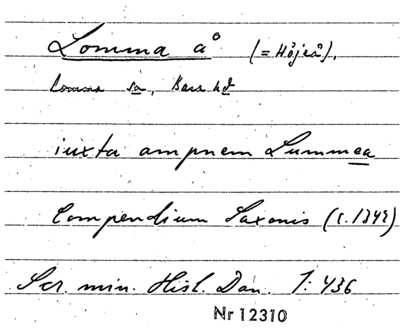 Lomma å (= Höjeå).
Lomma sn, Bara hd
iuxta ampnem Lummaa
Compendium Saxonis (c. 1342)
Scr. min. Hist. Dan. 1: 436
Nr 12310